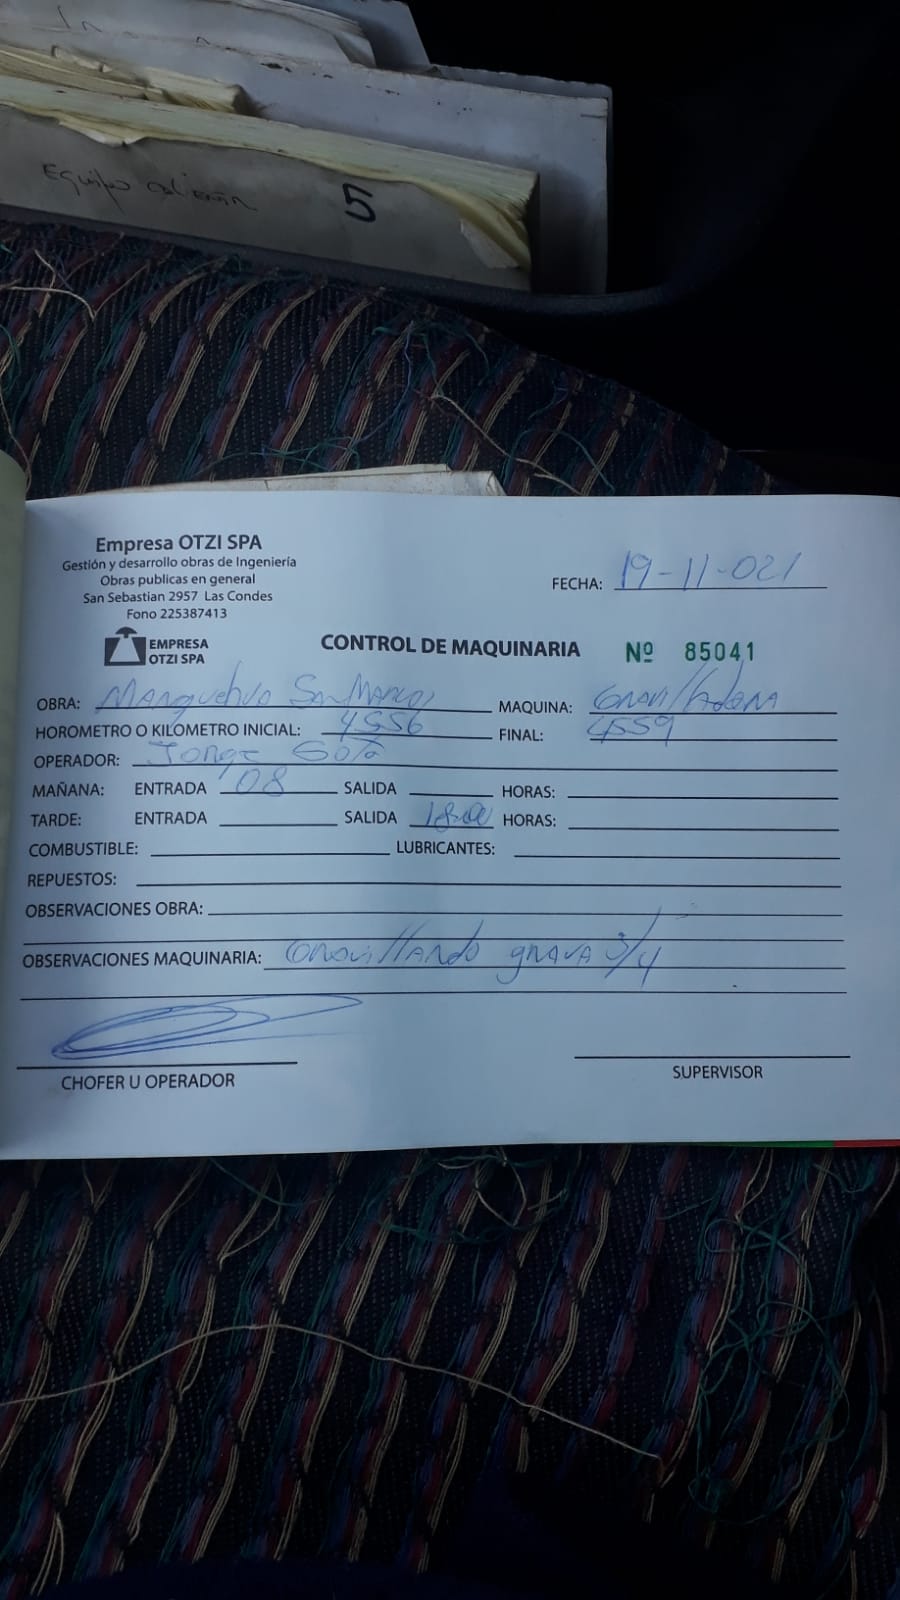 Equipo 5
Empresa OTZI SPA
Gestión y desarrollo obras de Ingeniería
Obras publicas en general
San Sebastian 2957 Las Condes
Fono 225387413
FECHA: 19-11-021
EMPRESA
OTZI SPA
CONTROL DE MAQUINARIA Nº 85041
OBRA: Manquehue San Marcos MAQUINA: Gravilladora
HOROMETRO O KILOMETRO INICIAL: 4556 FINAL: 4559
OPERADOR: Jorge Soto
MAÑANA: ENTRADA 08 SALIDA HORAS:
TARDE: ENTRADA SALIDA 18:00 HORAS:
COMBUSTIBLE: LUBRICANTES:
REPUESTOS:
OBSERVACIONES OBRA:
OBSERVACIONES MAQUINARIA: Gravillando grava 3/4
CHOFER U OPERADOR
SUPERVISOR